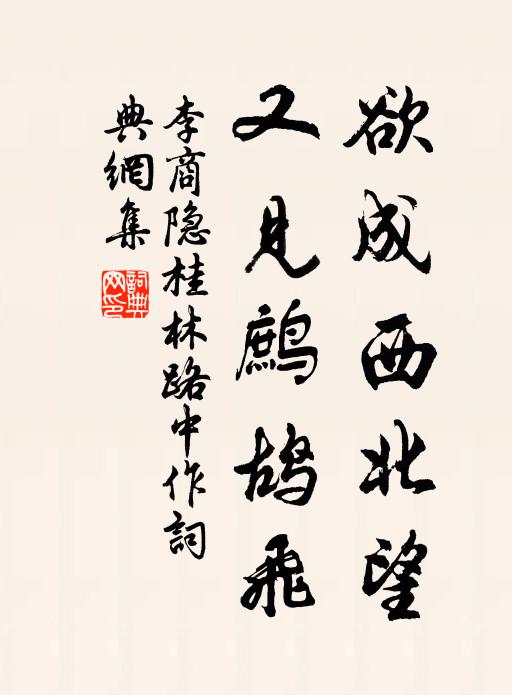 欲成西北望
又見鷓鴣飛
李商隐桂林路中作詞
典網集
詞典
网印